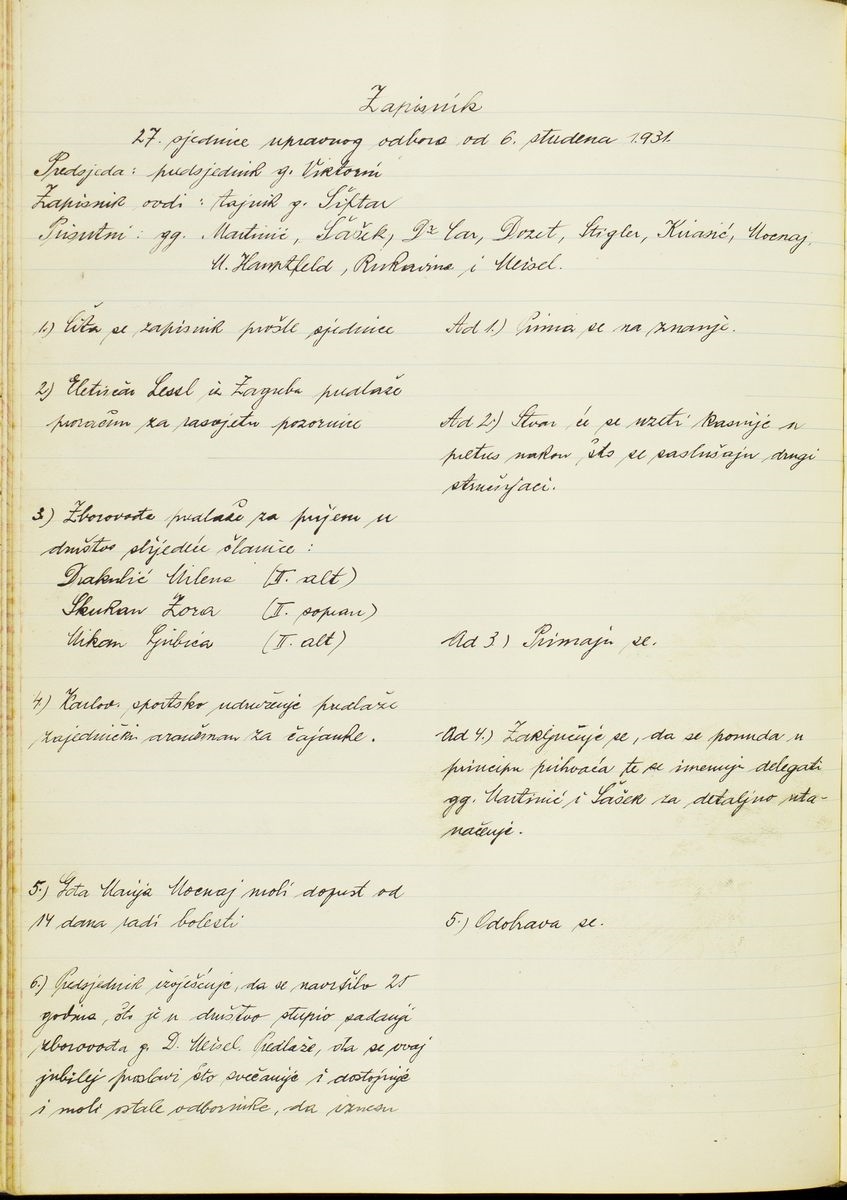 Zapisnik
27. sjednice upravnog odbora od 6. studena 1931.
Predsjeda: predsjednik g. Viktorin
Zapisnik vodi: tajnik g. Šiftar
Prisutni: gg. Martinić, Šašek, Dr Car, Dozet, Stigler, Kirasić, Mocnaj,
M. Hauptfeld, Rukavina i Meisel.
1.) Čita se zapisnik prošle sjednice
Ad 1.) Prima se na znanje.
2.) Eletričar Lessl iz Zagreba predlaže
proračun za rasvjetu pozornice
Ad 2.) Stvar će se uzeti kasnije u
pretres nakon što se saslušaju drugi
stručnjaci.
3.) Zborovođa predlaže za prijem u
društvo slijedeće članice:
Drakulić Milena (II. alt)
Skukan Zora (II. sopran)
Mikan Ljubica (II. alt)
Ad 3.) Primaju se.
4.) Karlov. sportsko udruženje predlaže
zajednički aranžman za čajanke.
Ad 4.) Zaključuje se, da se ponuda u
principu prihvaća te se imenuju delegati
gg. Martinić i Šašek za detaljno uta-
načenje.
5.) Gđa Marija Mocnaj moli dopust od
14 dana radi bolesti
5.) Odobrava se.
6.) Predsjednik izvješćuje, da se navršilo 25
godina, što je u društvo stupio sadanji
zborovođa g. D. Meisel. Predlaže, da se ovaj
jubilej proslavi što svečanije i dostojnije
i moli ostale odbornike, da iznesu